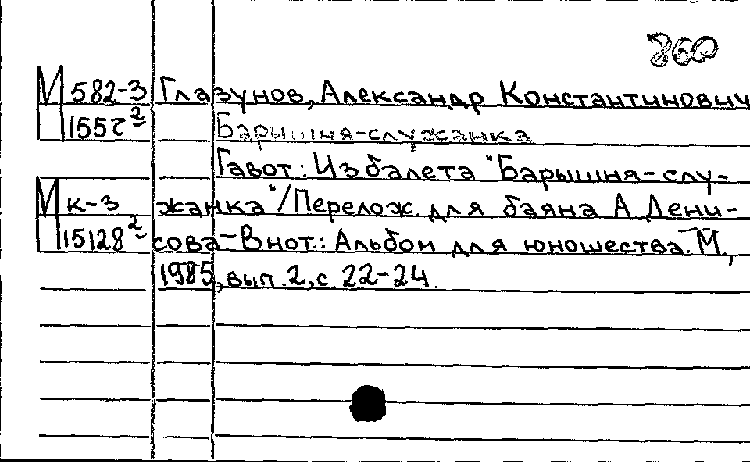 860
М 582-3 Глазунов, Александр Константинович
1557² Барышня-служанка
Гавот: Из балета "Барышня-слу-
М к-3 жанка"/Перелож. для баяна А Дени-
15128² сова-В нот.: Альбом для юношества. М.,
1985, вып. 2, с 22-24.